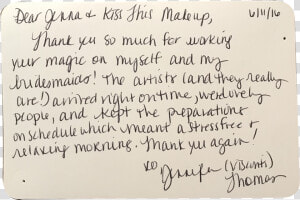 Dear Jenna & Kiss This Makeup,
6/11/16
Thank you so much for working
your magic on myself and my
bridesmaids! The artists (and they really
are!) arrived right on time, were lovely
people, and kept the preparations
on schedule which meant a stress free &
relaxing morning. Thank you again!
xo Jennifer (Visconti)
Thomas